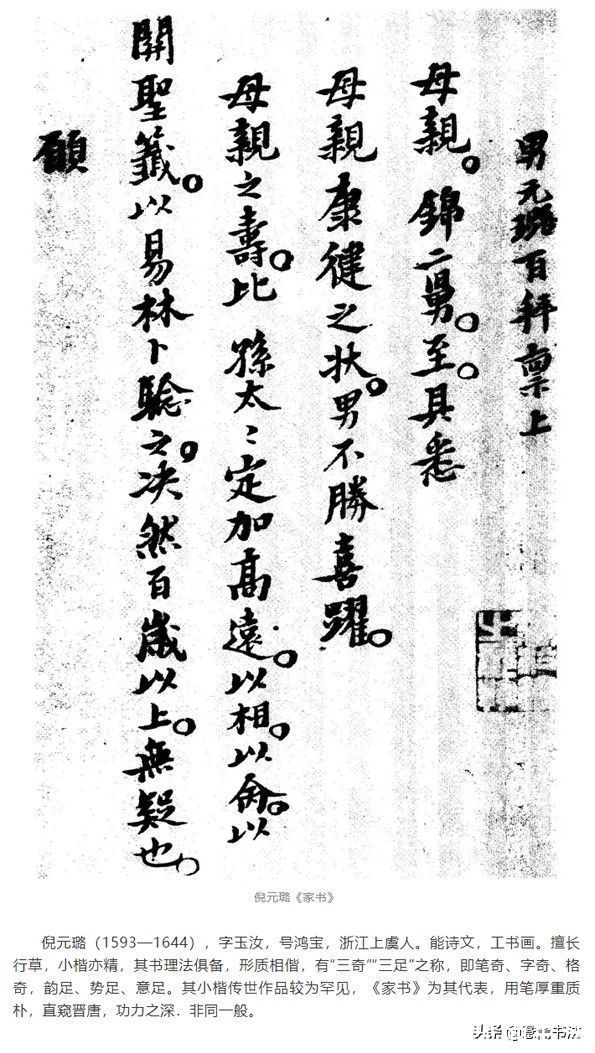 男元璐百拜禀上
母親。錦二舅。至。具悉
母親康健之狀。男不勝喜躍。
母親之壽。比孫太〻定加高遠。以相。以命。以
開聖籤。以易林卜驗之。决然百歲以上。無疑也。
願
倪元璐《家书》
倪元璐（1593—1644），字玉汝，号鸿宝，浙江上虞人。能诗文，工书画。擅长
行草，小楷亦精，其书理法俱备，形质相偕，有“三奇”“三足”之称，即笔奇、字奇、格
奇，韵足、势足、意足。其小楷传世作品较为罕见，《家书》为其代表，用笔厚重质
朴，直窥晋唐，功力之深．非同一般。
头条
书法